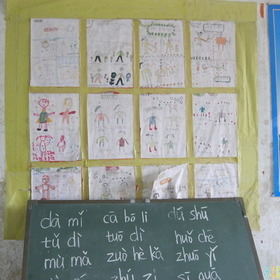 dà mǐ cā bō li dú shū
tǔ dì tuō dì huǒ chē
mù mǎ zuò hè kǎ zhuō yǐ
zhú zi sī guā